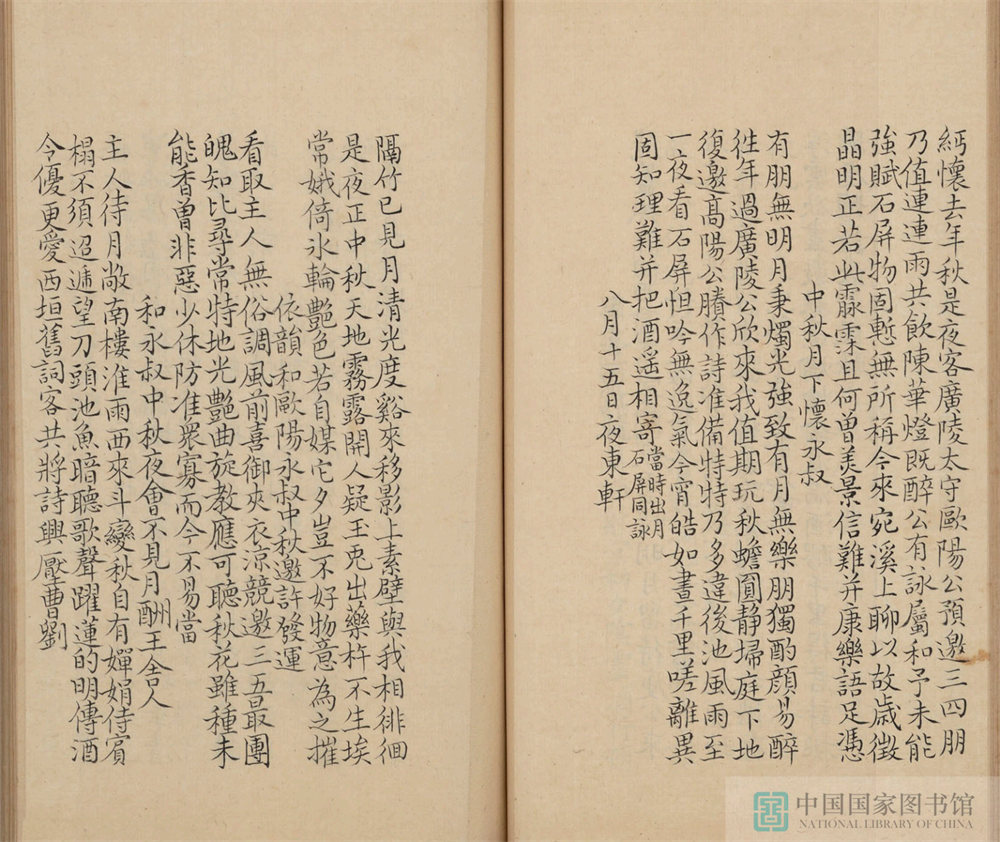 緬懷去年秋是夜客廣陵太守歐陽公預邀三四朋
乃值連連雨共飲陳華燈既醉公有詠屬和予未能
強賦石屏物固慙無所稱今來宛溪上聊以故歲徵
晶明正若此霡霂且何曾美景信難并康樂語足憑
中秋月下懷永叔
有朋無明月秉燭光強致有月無樂朋獨酌顏易醉
徃年過廣陵公欣來我值期玩秋蟾圓靜掃庭下地
復邀髙陽公賸作詩准備特特乃多違後池風雨至
一夜看石屏怛吟無逸氣今宵皓如晝千里嗟離異
固知理難并把酒遥相寄當時出月石屏同詠
八月十五日夜東軒
隔竹已見月清光度谿來移影上素壁與我相徘徊
是夜正中秋天地霧露開人疑玉兎出藥杵不生埃
常娥倚氷輪艷色若自媒它夕豈不好物意為之摧
依韻和歐陽永叔中秋邀許發運
看取主人無俗調風前喜御夾衣涼競邀三五最團
魄知比尋常特地光艷曲旋教應可聽秋花雖種未
能香曽非惡少休防准衆寡而今不易當
和永叔中秋夜會不見月酬王舍人
主人待月敞南樓淮雨西來斗變秋自有嬋娟侍賓
榻不須迢遞望刀頭池魚暗聽歌聲躍蓮的明傳酒
令優更愛西垣舊詞客共將詩興壓曹劉
中国国家图书馆
NATIONAL LIBRARY OF CHINA